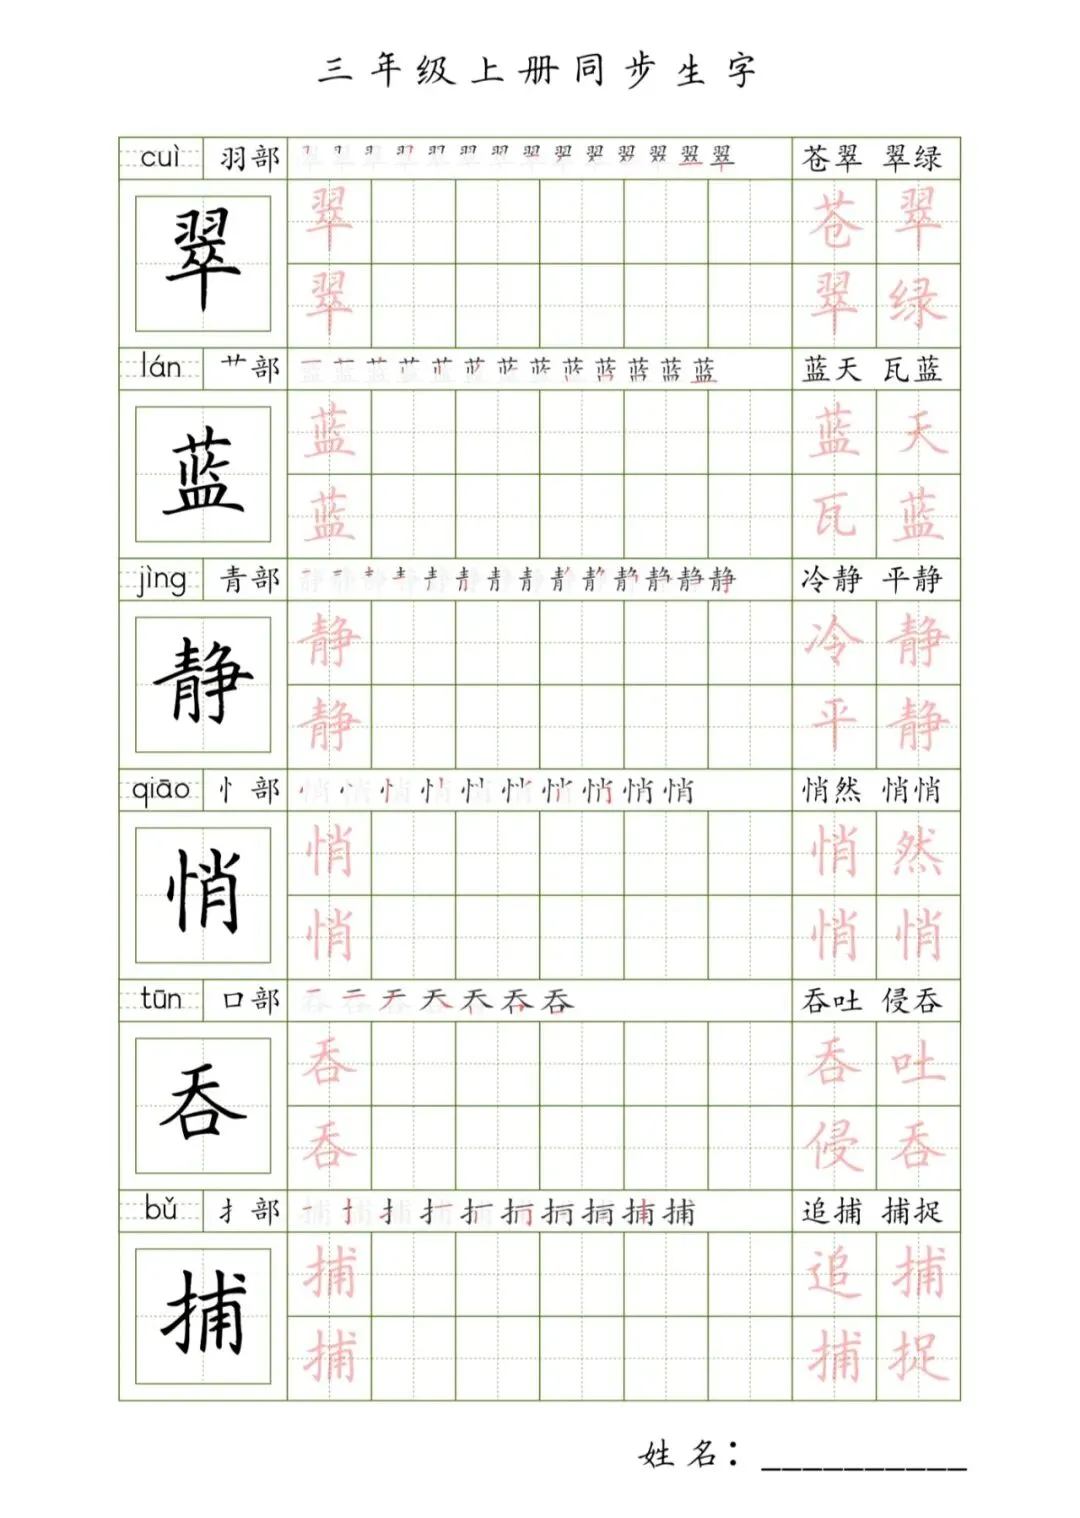 三年级上册同步生字
cuì 羽部 苍翠 翠绿
翠 翠 苍 翠
翠 翠 绿
lán 艹部 蓝天 瓦蓝
蓝 蓝 蓝 天
蓝 瓦 蓝
jìng 青部 冷静 平静
静 静 冷 静
静 平 静
qiāo 忄部 悄然 悄悄
悄 悄 悄 然
悄 悄 悄
tūn 口部 吞吐 侵吞
吞 吞 吞 吐
吞 侵 吞
bǔ 扌部 追捕 捕捉
捕 捕 追 捕
捕 捕 捉
姓名：__________